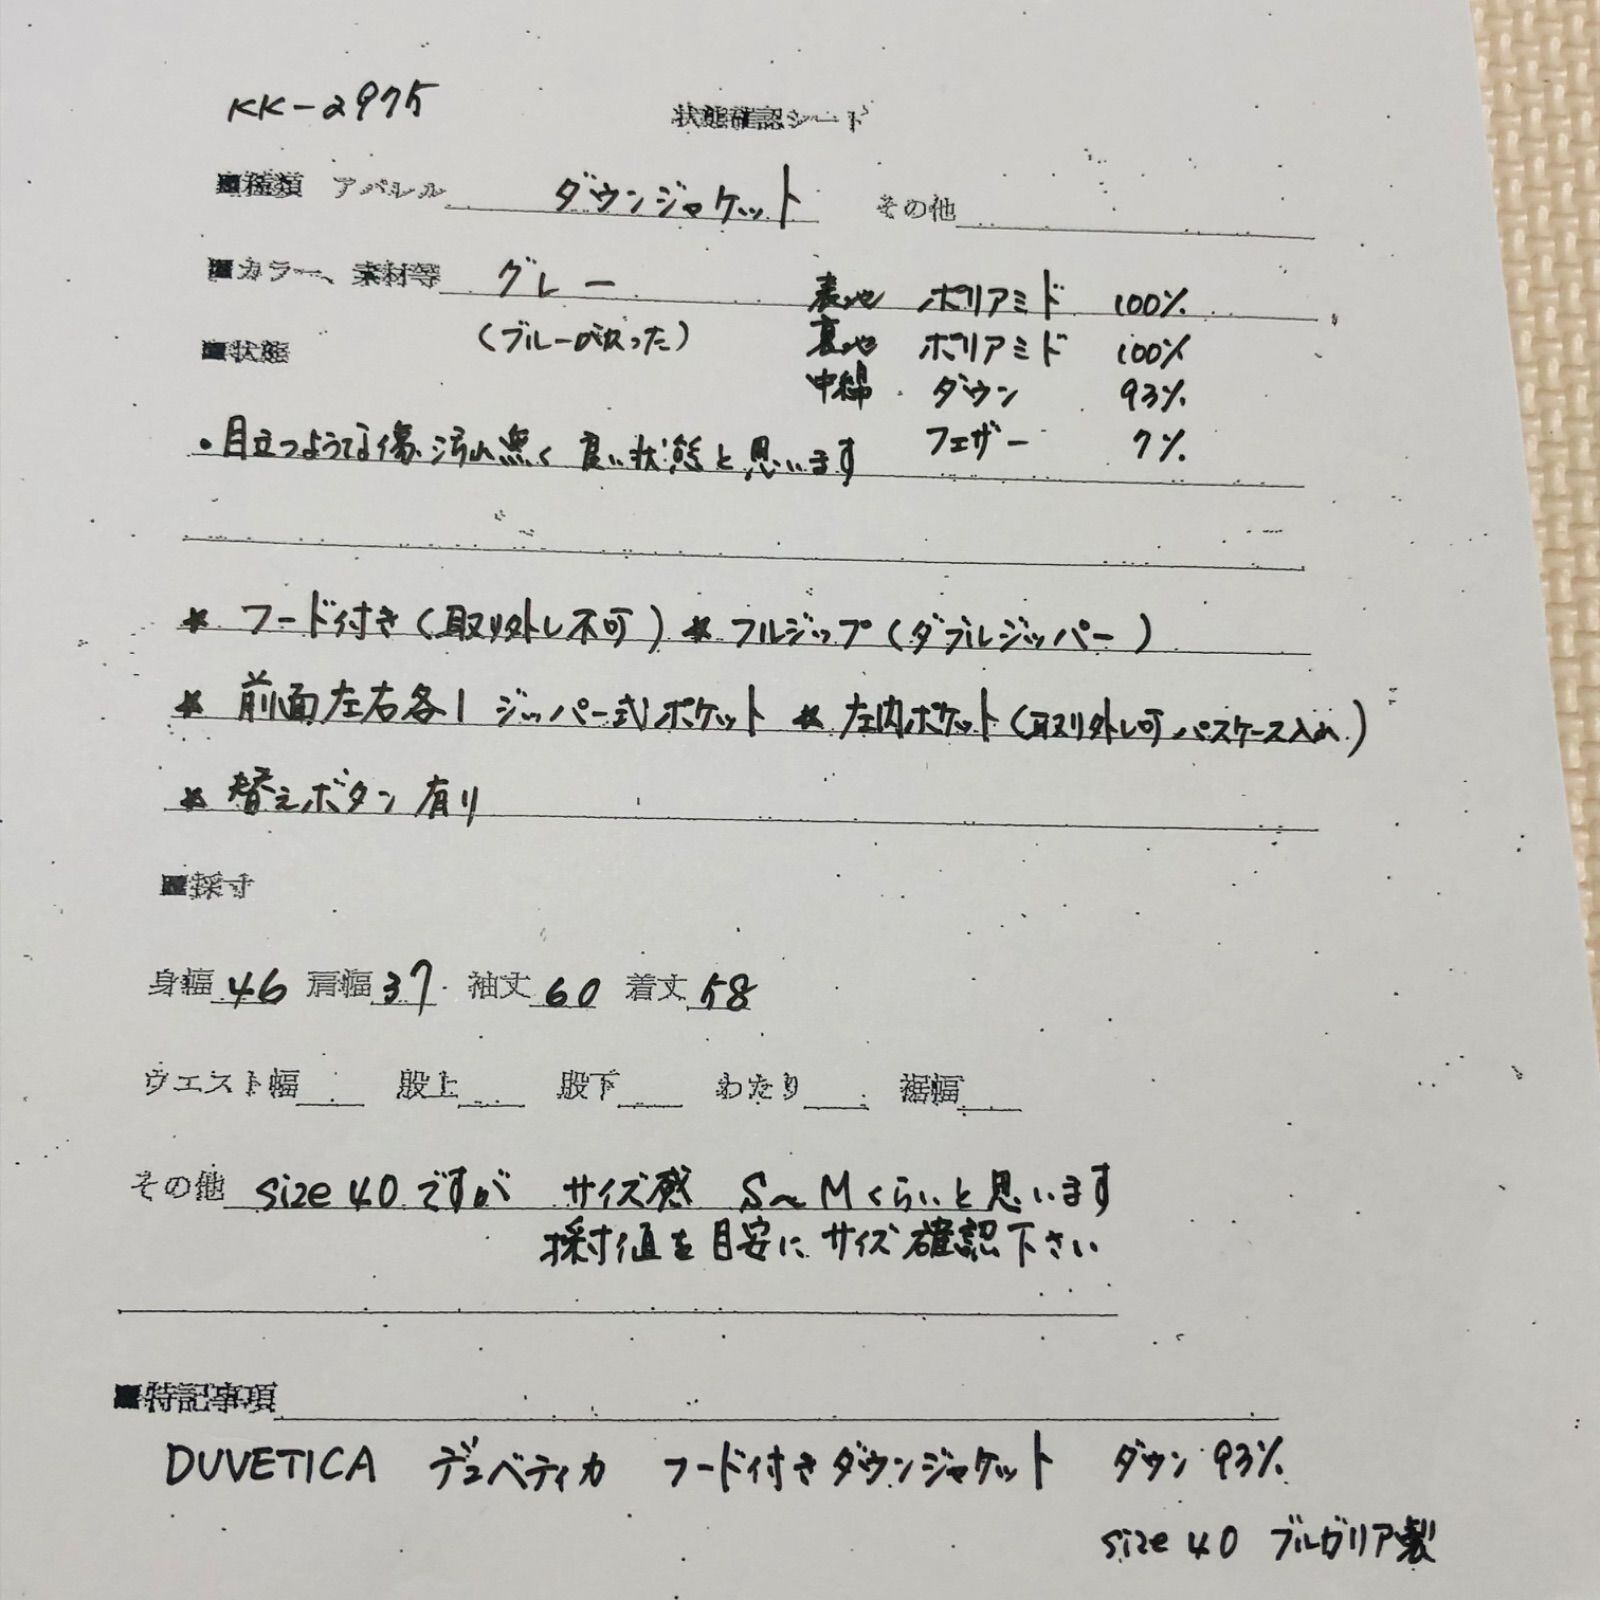 KK-2975
状態確認シート
■種類 アパレル ダウンジャケット その他
■カラー、素材等 グレー 表地 ポリアミド 100%
(ブルーがかった) 裏地 ポリアミド 100%
■状態
中綿 ダウン 93%
フェザー 7%
・目立つような傷、汚れ無く 良い状態と思います
* フード付き(取り外し不可) * フルジップ(ダブルジッパー)
* 前面左右各1 ジッパー式ポケット * 左内ポケット(取り外し可 パスケース入れ)
* 替えボタン有り
■採寸
身幅 46 肩幅 37 袖丈 60 着丈 58
ウエスト幅 股上 股下 わたり 裾幅
その他 size 40 ですが サイズ感 S〜Mくらいと思います
採寸値を目安に サイズ確認下さい
■特記事項
DUVETICA デュベティカ フード付きダウンジャケット ダウン 93%
size 40 ブルガリア製